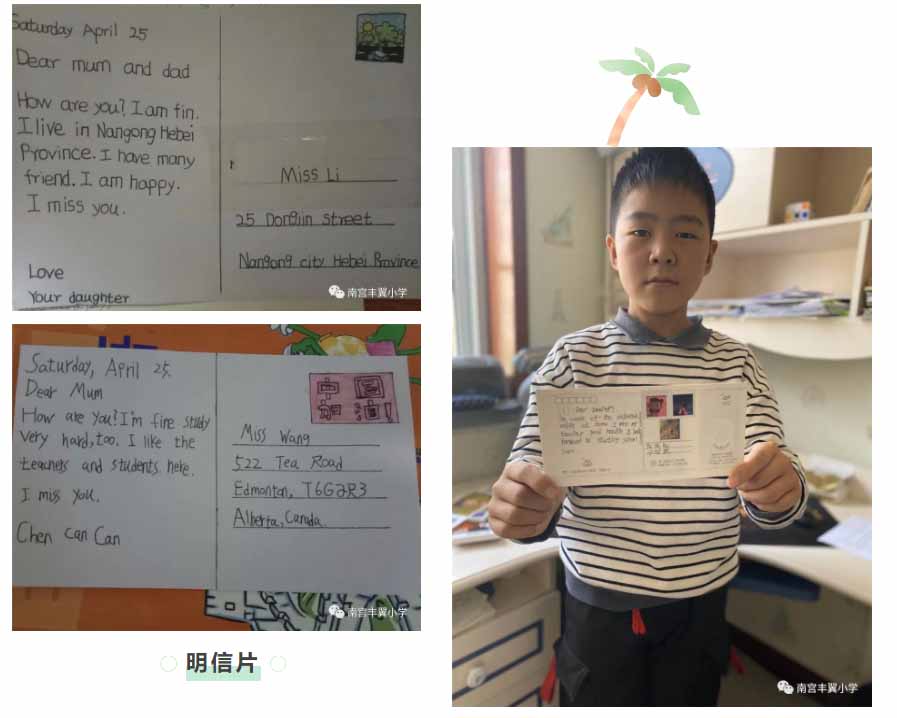 Saturday April 25
Dear mum and dad
How are you? I am fin.
I live in Nangong Hebei
Province. I have many
friend. I am happy.
I miss you.
Love
Your daughter
Miss Li
25 Dongjin street
Nangong city Hebei Province
南宫丰翼小学
Saturday, April 25.
Dear Mum
How are you? I'm fine study
very hard, too. I like the
teachers and students here.
I miss you.
Chen Can Can
Miss Wang
522 Tea Road
Edmonton, T6G2R3
Alberta, Canada.
南宫丰翼小学
明信片
南宫丰翼小学